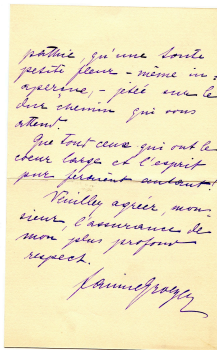 pathie, qu'une toute
petite fleur - même in-
aperçue, - jetée sur le
dur chemin qui vous
attend.
Que tous ceux qui ont le
coeur large et l'esprit
pur
Veuillez agréer, mon-
sieur, l'assurance de
mon plus profond
respect.